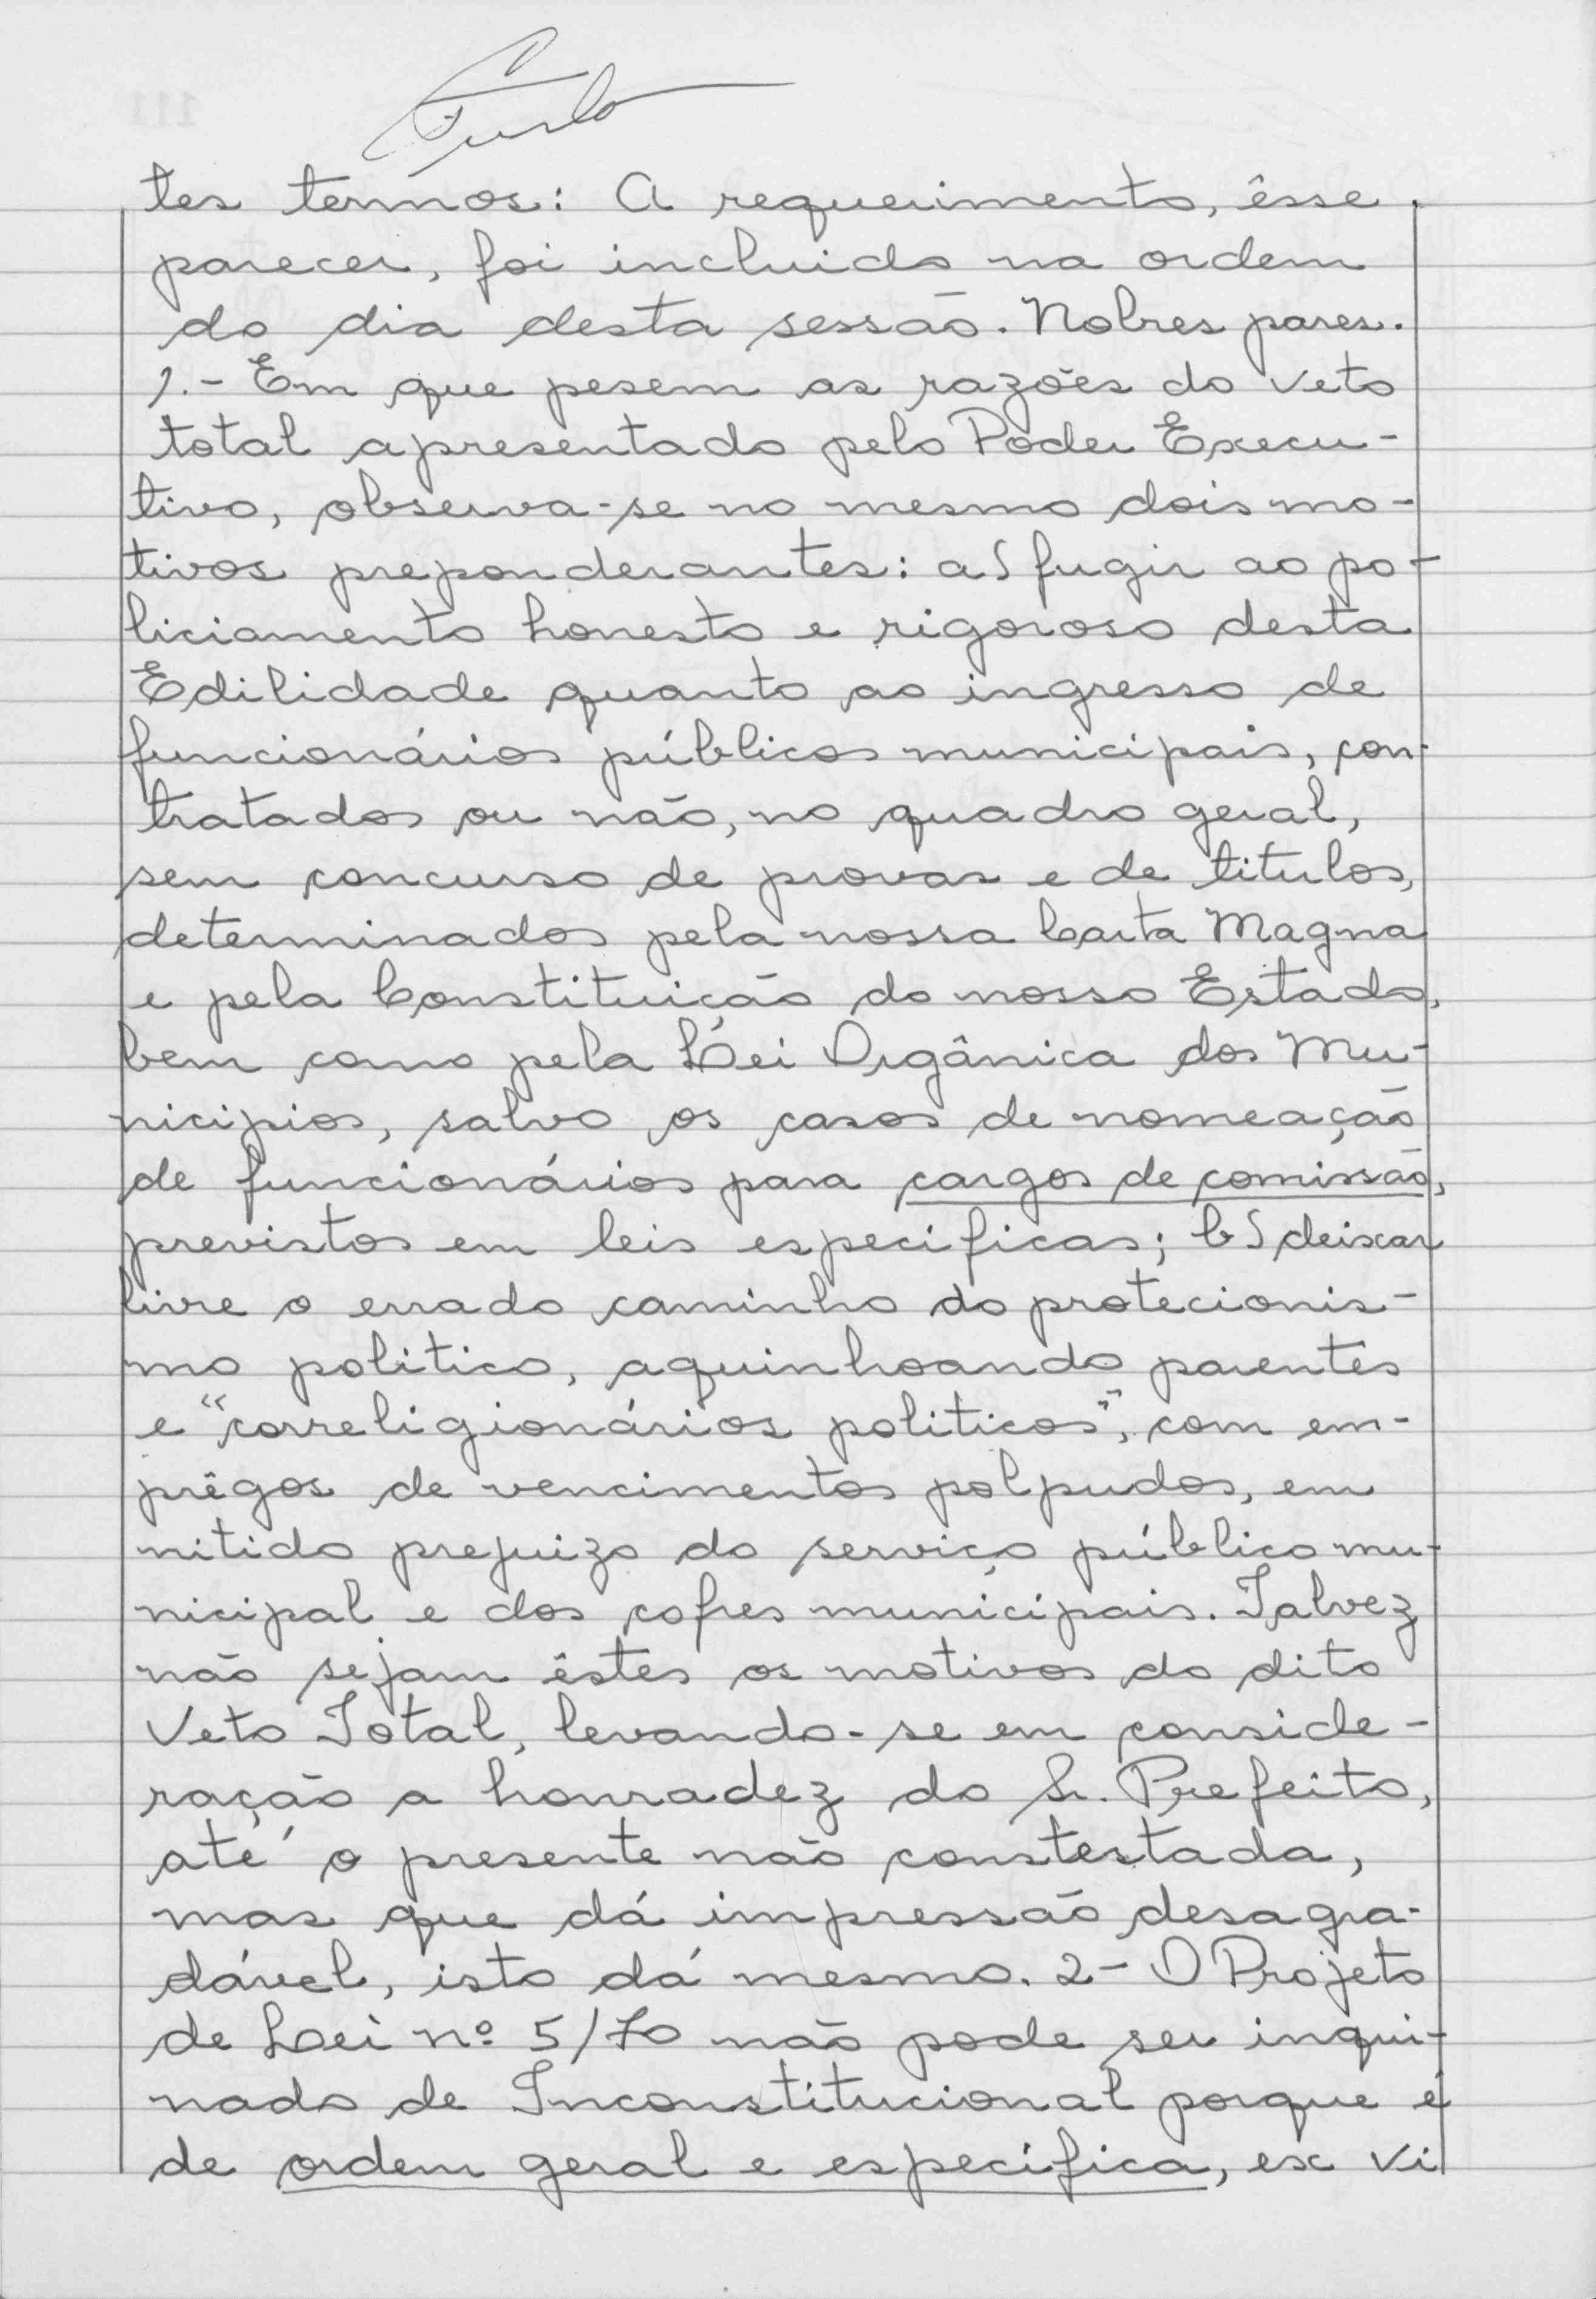 tes termos: A requerimento, êsse
parecer, foi incluido na ordem
do dia desta sessão. Nobres pares.
1.- Em que pesem as razões do veto
total apresentado pelo Poder Execu-
tivo, observa-se no mesmo dois mo-
tivos preponderantes: a) fugir ao po-
liciamento honesto e rigoroso desta
Edilidade quanto ao ingresso de
funcionários públicos municipais, con-
tratados ou não, no quadro geral,
sem concurso de provas e de titulos,
determinados pela nossa Carta Magna
e pela Constituição do nosso Estado,
bem como pela Lei Orgânica dos Mu-
nicipios, salvo os casos de nomeação
de funcionários para cargos de comissão,
previstos em leis especificas; b) deixar
livre o errado caminho do protecionis-
mo politico, aquinhoando parentes
e "correligionários politicos", com em-
prêgos de vencimentos polpudos, em
nitido prejuizo do serviço público mu-
nicipal e dos cofres municipais. Talvez
não sejam êstes os motivos do dito
Veto Total, levando-se em conside-
ração a honradez do Sr. Prefeito,
até o presente não constestada,
mas que dá impressão desagra-
dável, isto dá mesmo. 2- O Projeto
de Lei nº 5/70 não pode ser inqui-
nado de Inconstitucional porque é
de ordem geral e especifica, ex vi